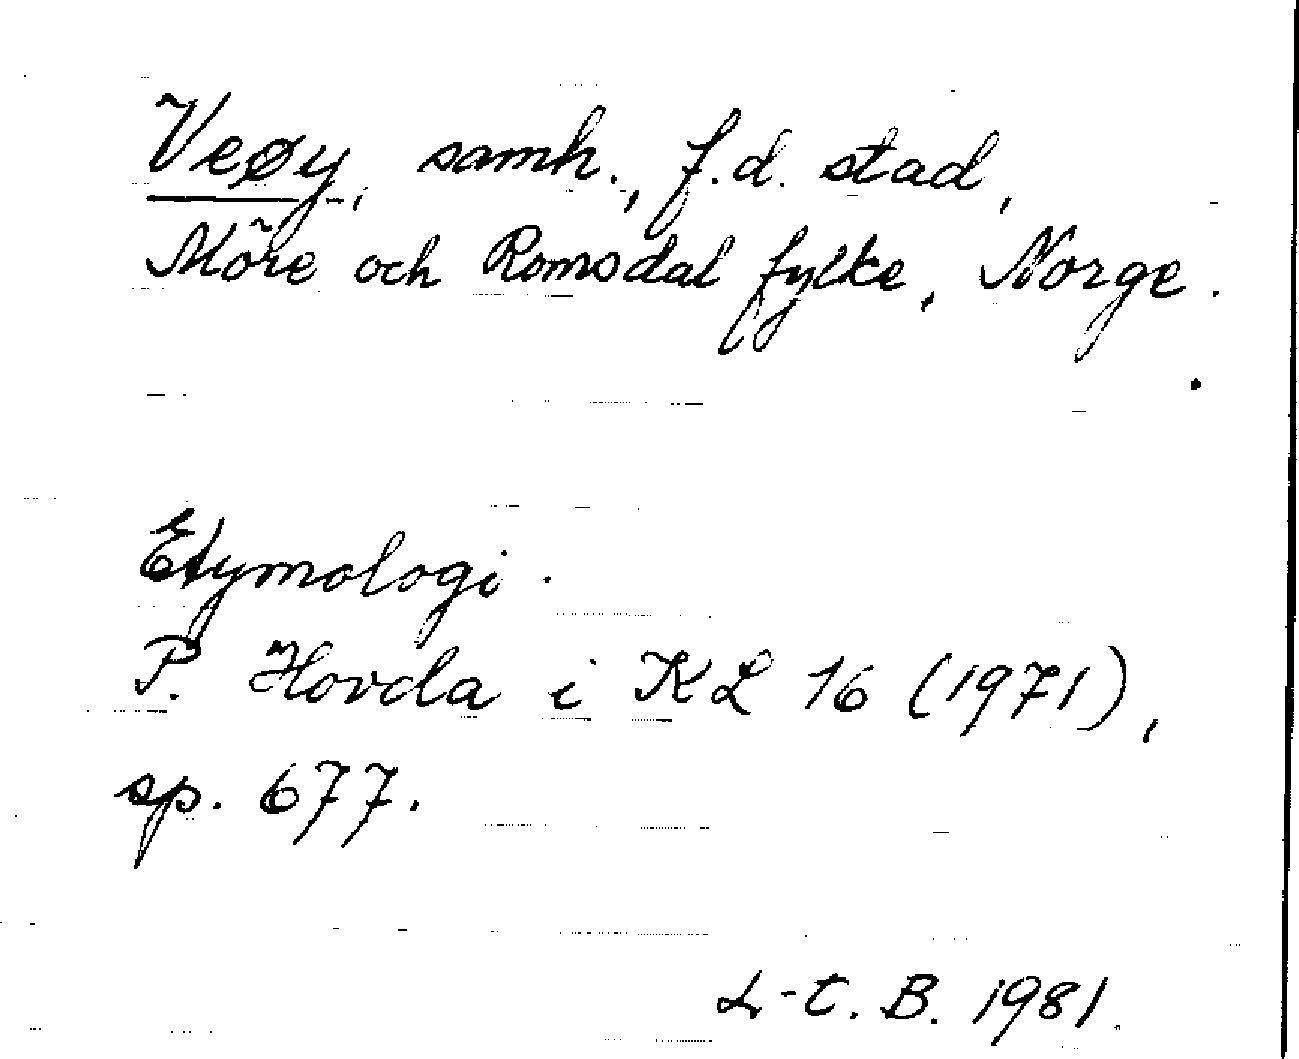 Veøy, samh., f.d. stad,
Möre och Romsdal fylke, Norge.
Etymologi.
P. Hovda i KL 16 (1971),
sp. 677.
L-E. B. 1981.